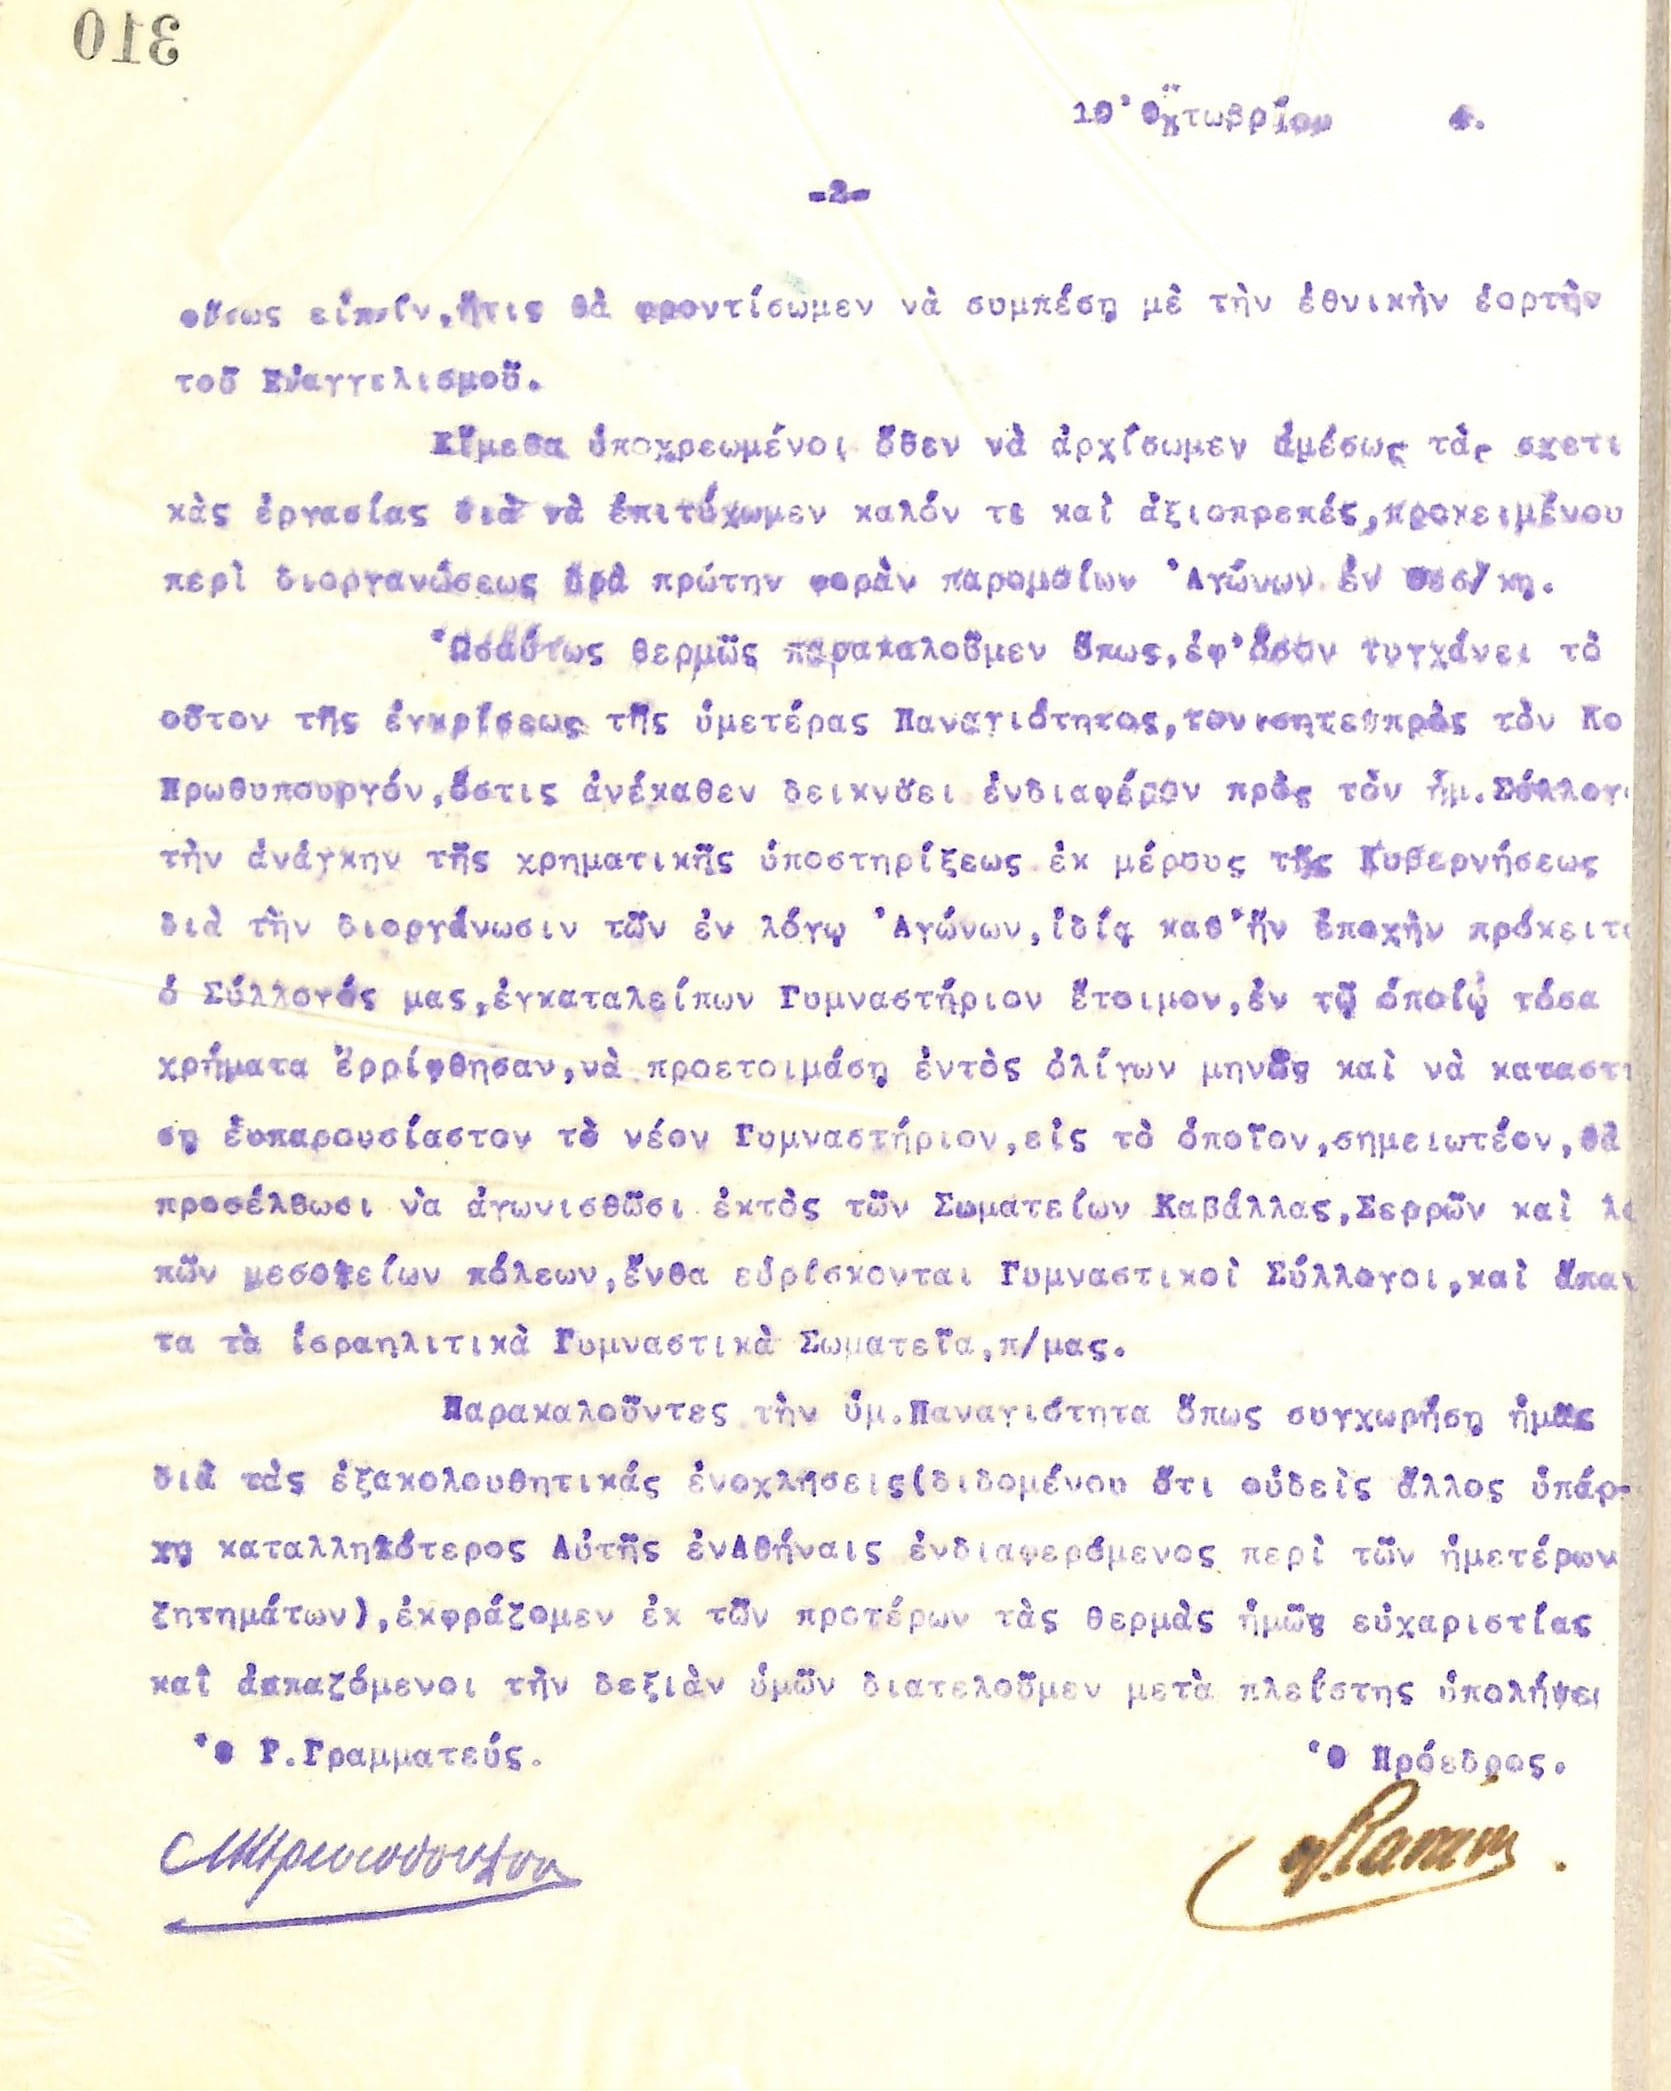 310
10 Ὀκτωβρίου 4.
-2-
οὕτως εἰπεῖν,ἥτις θὰ φροντίσωμεν νὰ συμπέσῃ μὲ τὴν ἐθνικὴν ἑορτὴν
τοῦ Εὐαγγελισμοῦ.
Εἴμεθα ὑποχρεωμένοι ὅθεν νὰ ἀρχίσωμεν ἀμέσως τὰς σχετι
κὰς ἐργασίας διὰ νὰ ἐπιτύχωμεν καλόν τι καὶ ἀξιοπρεπές,προκειμένου
περὶ διοργανώσεως διὰ πρώτην φορὰν παρομοίων Ἀγώνων ἐν Θεσ/κῃ.
Ὡσαύτως θερμῶς παρακαλοῦμεν ὅπως,ἐφ'ὅσον τυγχάνει τὸ
οῦτον τῆς ἐγκρίσεως τῆς ὑμετέρας Παναγιότητος,τονίσητε πρὸς τὸν Κο
Πρωθυπουργόν,ὅστις ἀνέκαθεν δεικνύει ἐνδιαφέρον πρὸς τὸν ἡμ.Σύλλογο
τὴν ἀνάγκην τῆς χρηματικῆς ὑποστηρίξεως ἐκ μέρους τῆς Κυβερνήσεως
διὰ τὴν διοργάνωσιν τῶν ἐν λόγῳ Ἀγώνων,ἰδίᾳ καθ'ἣν ἐποχὴν πρόκειτα
ὁ Σύλλογός μας,ἐγκαταλείπων Γυμναστήριον ἕτοιμον,ἐν τῷ ὁποίῳ τόσα
χρήματα ἐρρίφθησαν,νὰ προετοιμάσῃ ἐντὸς ὀλίγων μηνῶν καὶ νὰ καταστή
σῃ εὐπαρουσίαστον τὸ νέον Γυμναστήριον,εἰς τὸ ὁποῖον,σημειωτέον,θὰ
προσέλθωσι νὰ ἀγωνισθῶσι ἐκτὸς τῶν Σωματείων Καβάλλας,Σερρῶν καὶ λο
πῶν μεσογείων πόλεων,ἔνθα εὑρίσκονται Γυμναστικοὶ Σύλλογοι,καὶ ἅπαν
τα τὰ ἰσραηλιτικὰ Γυμναστικὰ Σωματεῖα,π/μας.
Παρακαλοῦντες τὴν ὑμ.Παναγιότητα ὅπως συγχωρήσῃ ἡμᾶς
διὰ τὰς ἐξακολουθητικάς ἐνοχλήσεις(διδομένου ὅτι οὐδεὶς ἄλλος ὑπάρ-
χῃ καταλληλότερος Αὐτῆς ἐνΑθήναις ἐνδιαφερόμενος περὶ τῶν ἡμετέρων
ζητημάτων),ἐκφράζομεν ἐκ τῶν προτέρων τὰς θερμὰς ἡμῶν εὐχαριστίας
καὶ ἀσπαζόμενοι τὴν δεξιὰν ὑμῶν διατελοῦμεν μετὰ πλείστης ὑπολήψει
Ὁ Γ.Γραμματεύς. Ὁ Πρόεδρος.